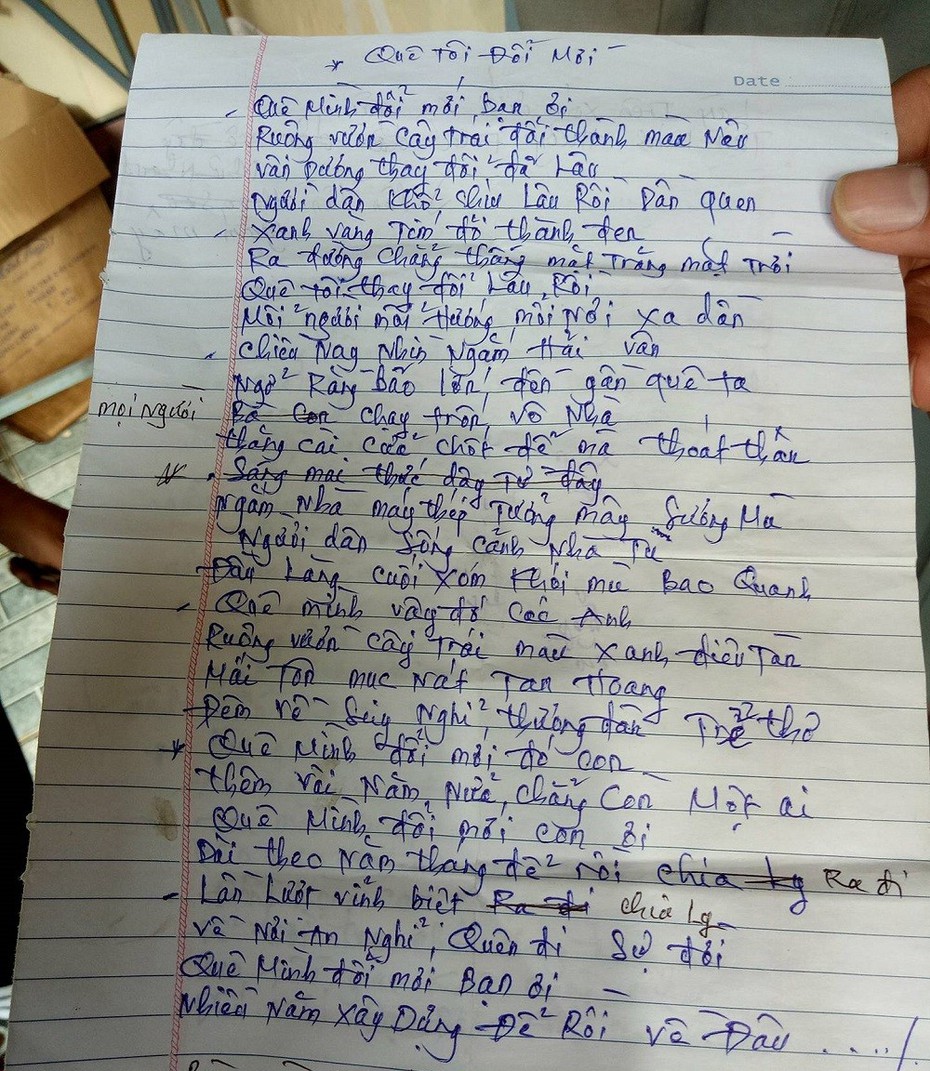 * Quê Tôi Đổi Mới
Date
- Quê Mình đổi mới, Bạn ơi
Ruộng vườn cây trái đổi thành màu Nâu
vấn Đường thay đổi đã Lâu
Người dân khổ chịu Lâu Rồi Dần quen
- Xanh vàng Tím đỏ thành đen
Ra đường chẳng thấy mặt Trăng mặt Trời
Quê tôi thay đổi Lâu Rồi
Mỗi người mỗi Hướng, mỗi Nơi xa dần
- chiều Nay Nhìn Ngắm Hải vân
Ngỡ Rằng bão lớn, đến gần quê ta
mọi người Bà Con chạy trốn, vô Nhà
thằng cài cửa chốt để mà thoát thân
- Sáng mai thức dậy Từ đây
Ngắm Nhà máy thép Tưởng mây Sương Mù
Người dân Sống cảnh Nhà Tù
Đầu Làng cuối xóm Khói mù Bao Quanh
- Quê mình vậy đó Các Anh
Ruộng vườn cây Trái màu xanh điêu Tàn
Mái Tôn mục Nát Tan Hoang
Đêm về Suy Nghĩ, thương đàn Trẻ thơ
* Quê Mình đổi mới đó con
thêm vài Năm Nữa, chẳng Còn Một ai
Quê Mình đổi mới con ơi
Dài theo năm tháng để rồi chia ly Ra đi
- Lần Lượt vĩnh biệt Ra đi chia Ly
về Nơi An Nghỉ, Quên đi Sự đời
Quê Mình đổi mới Bạn ơi
Nhiều Năm Xây Dựng Để Rồi về Đâu ...../.